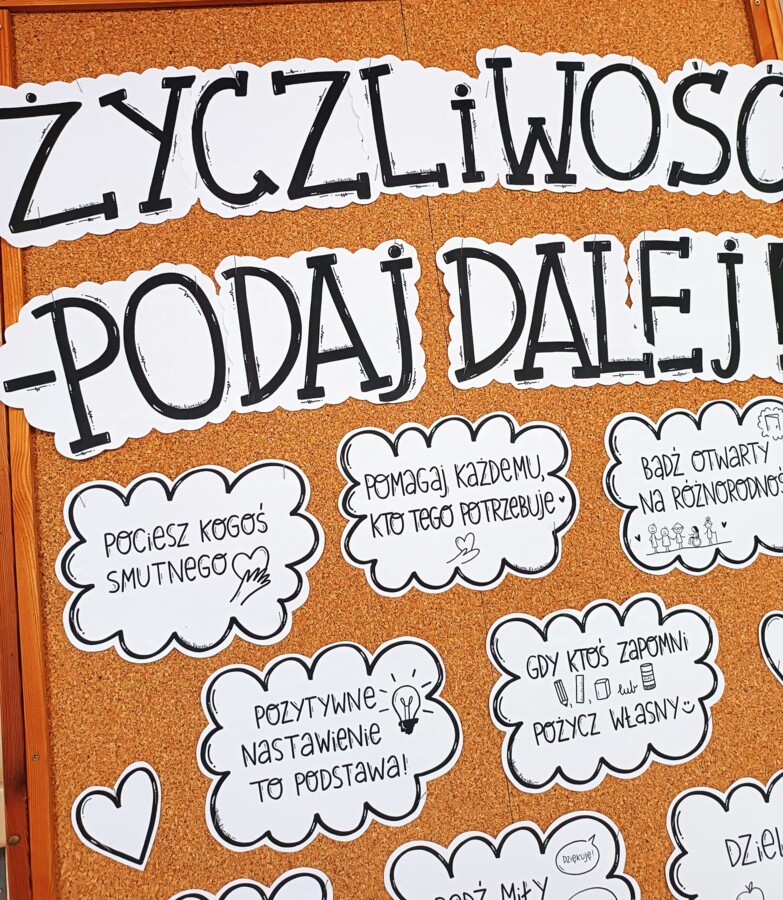 ŻYCZLiWOŚĆ
-PODAJ DALEJ!
POCIESZ KOGOŚ
SMUTNEGO
POMAGAJ KAŻDEMU,
KTO TEGO POTRZEBUJE
BĄDŹ OTWARTY
NA RÓŻNORODNOŚ
POZYTYWNE
NASTAWIENIE
TO PODSTAWA!
GDY KTOŚ ZAPOMNI
, , lub
POŻYCZ WŁASNY
DZIĘKUJĘ!
BĄDŹ MIŁY
DZIEL